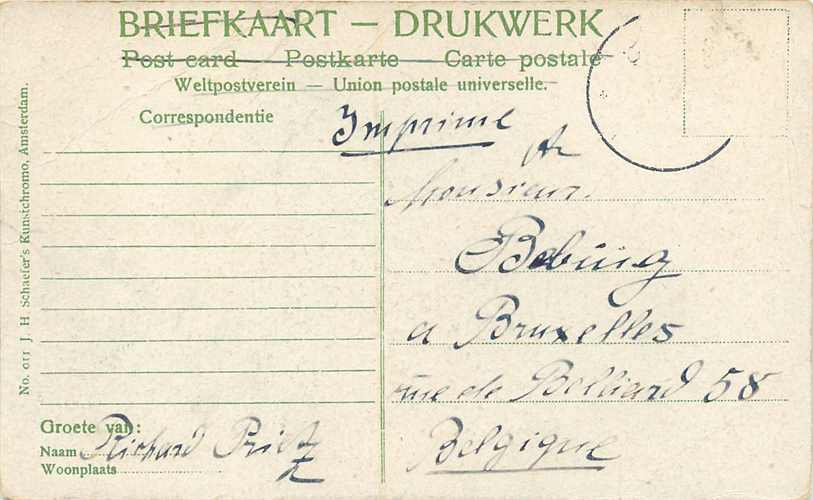 BRIEFKAART — DRUKWERK
Post card — Postkarte — Carte postale
Weltpostverein — Union postale universelle.
Correspondentie
Imprimé
Monsieur
Bebing
a Bruxelles
rue de Belliard 58
Belgique
Groete van:
Naam Richard
Woonplaats
No. 011 J. H. Schaefer's Kunstchromo, Amsterdam.